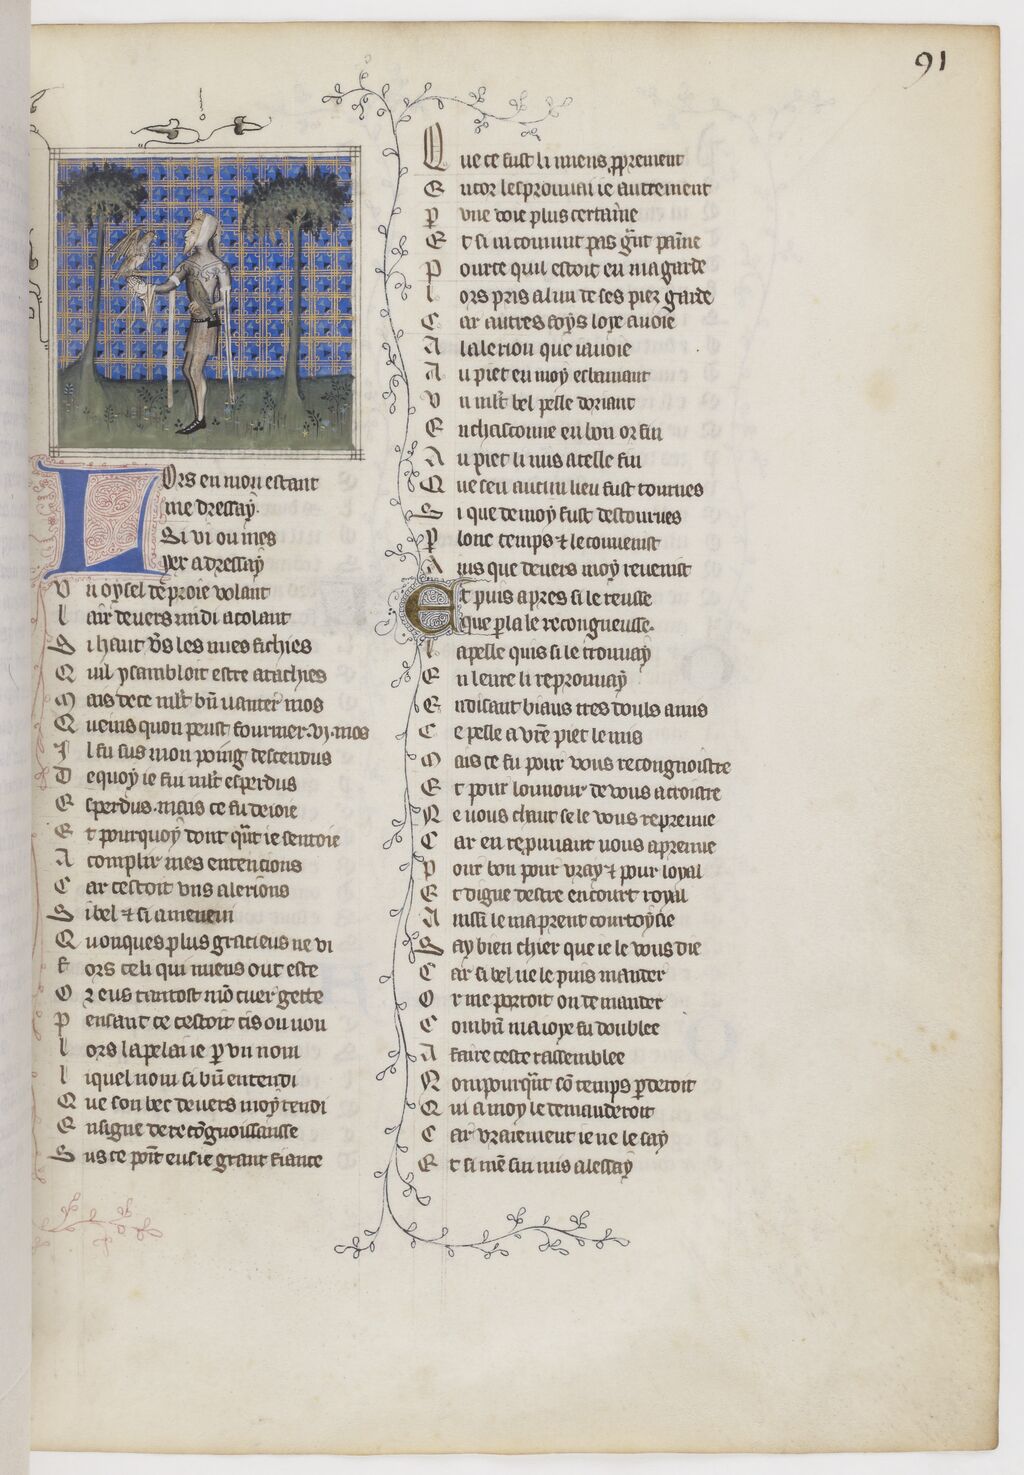 91
Lors en mon estant
me dressay.
Si vi ou mes
yex adressay
Un oysel de proie volant
lair devers midi acolant
Si haut vs les nues fichies
Quil y sambloit estre atachies
Mais de ce mlt bn vanter mos
Queins quon peust fourmer .vj. mos
Il fu sus mon poing descendus
De quoy ie fui mlt esperdus
Esperdus. mais ce fu de ioie
Et pourquoy dont qnt ie sentoie
Acomplir mes entencions
Car cestoit uns alerions
Si bel & si amenevi
Quonques plus gracieus ne vi
fors celi qui miens out este
Or eus tantost mo cuer gette
Pensant ce cestoit cis ou non
lors lapelai ie p un nom
liquel nom si bn entendi
Que son bec devers moy tendi
Ensigne de recognoissansse
Sus ce point eus ie grant fiance
Que ce fust li miens pprement
Encor lesprouvai ie autrement
P une voie plus certaine
Et si ni convint pas gnt paine
Pource quil estoit en ma garde
lors pris a lun de ses piez garde
Car autres foys loye avoie
Lalerion que iavoie
Au piet en moy esbanoiant
Un mlt bel pelle doriant
Enchasconne en bon or fin
Au piet li mis a celle fin
Que sen aucun lieu fust tournes
Si que de moy fust destournes
P lonc temps & le convenist
Ains que devers moy revenist
Et puis apres si le reusse
Que p la le recongneusse.
la pelle quis si le trouvay
En leure li reprouvay
En disant biaus tres douls amis
Ce pelle a vre piet le mis
Mais ce fu pour vous recongnoistre
Et pour lonnour de vous acroistre
Ne vous chaut se le vous reprenne
Car en reprenant vous aprenne
Pour bon pour vray & pour loyal
Et digne destre en court royal
Aussi le maprent courtoysie
Say bien chier que ie le vous die
Car si bel ne le puis mander
Or me portoit on demander
Conbn ma ioye fu doublee
A faire ceste rassemblee
Nonpourqnt so temps pderoit
Qui a moy le demanderoit
Car vraiement ie ne le say
Et si men sui mis a lessay